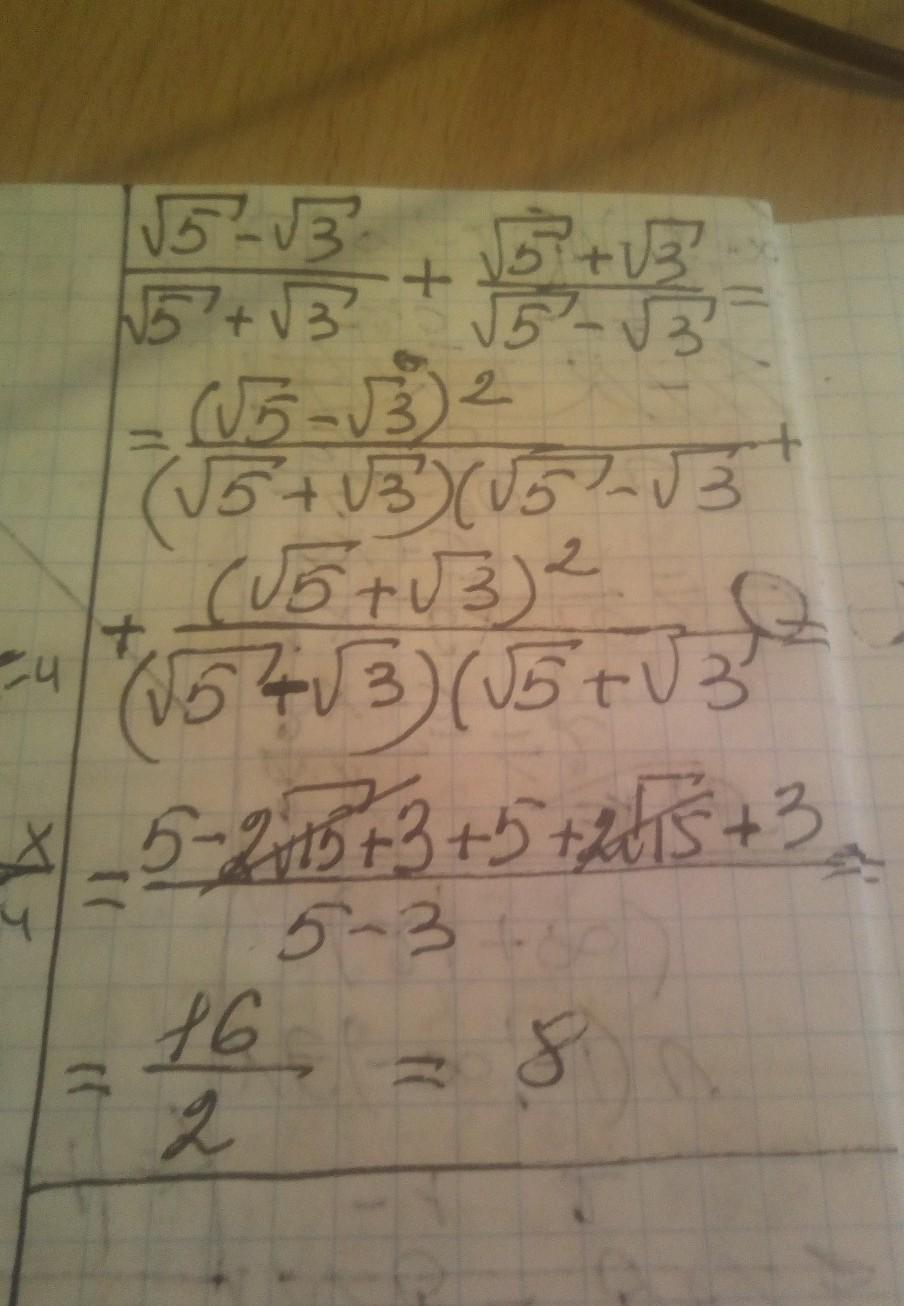 (√5 - √3)/(√5 + √3) + (√5 + √3)/(√5 - √3) =
= (√5 - √3)²/(√5 + √3)(√5 - √3 +
+ (√5 + √3)²/(√5 - √3)(√5 + √3) =
= (5 - 2√15 + 3 + 5 + 2√15 + 3)/(5 - 3) =
= 16/2 = 8
-4
x/4